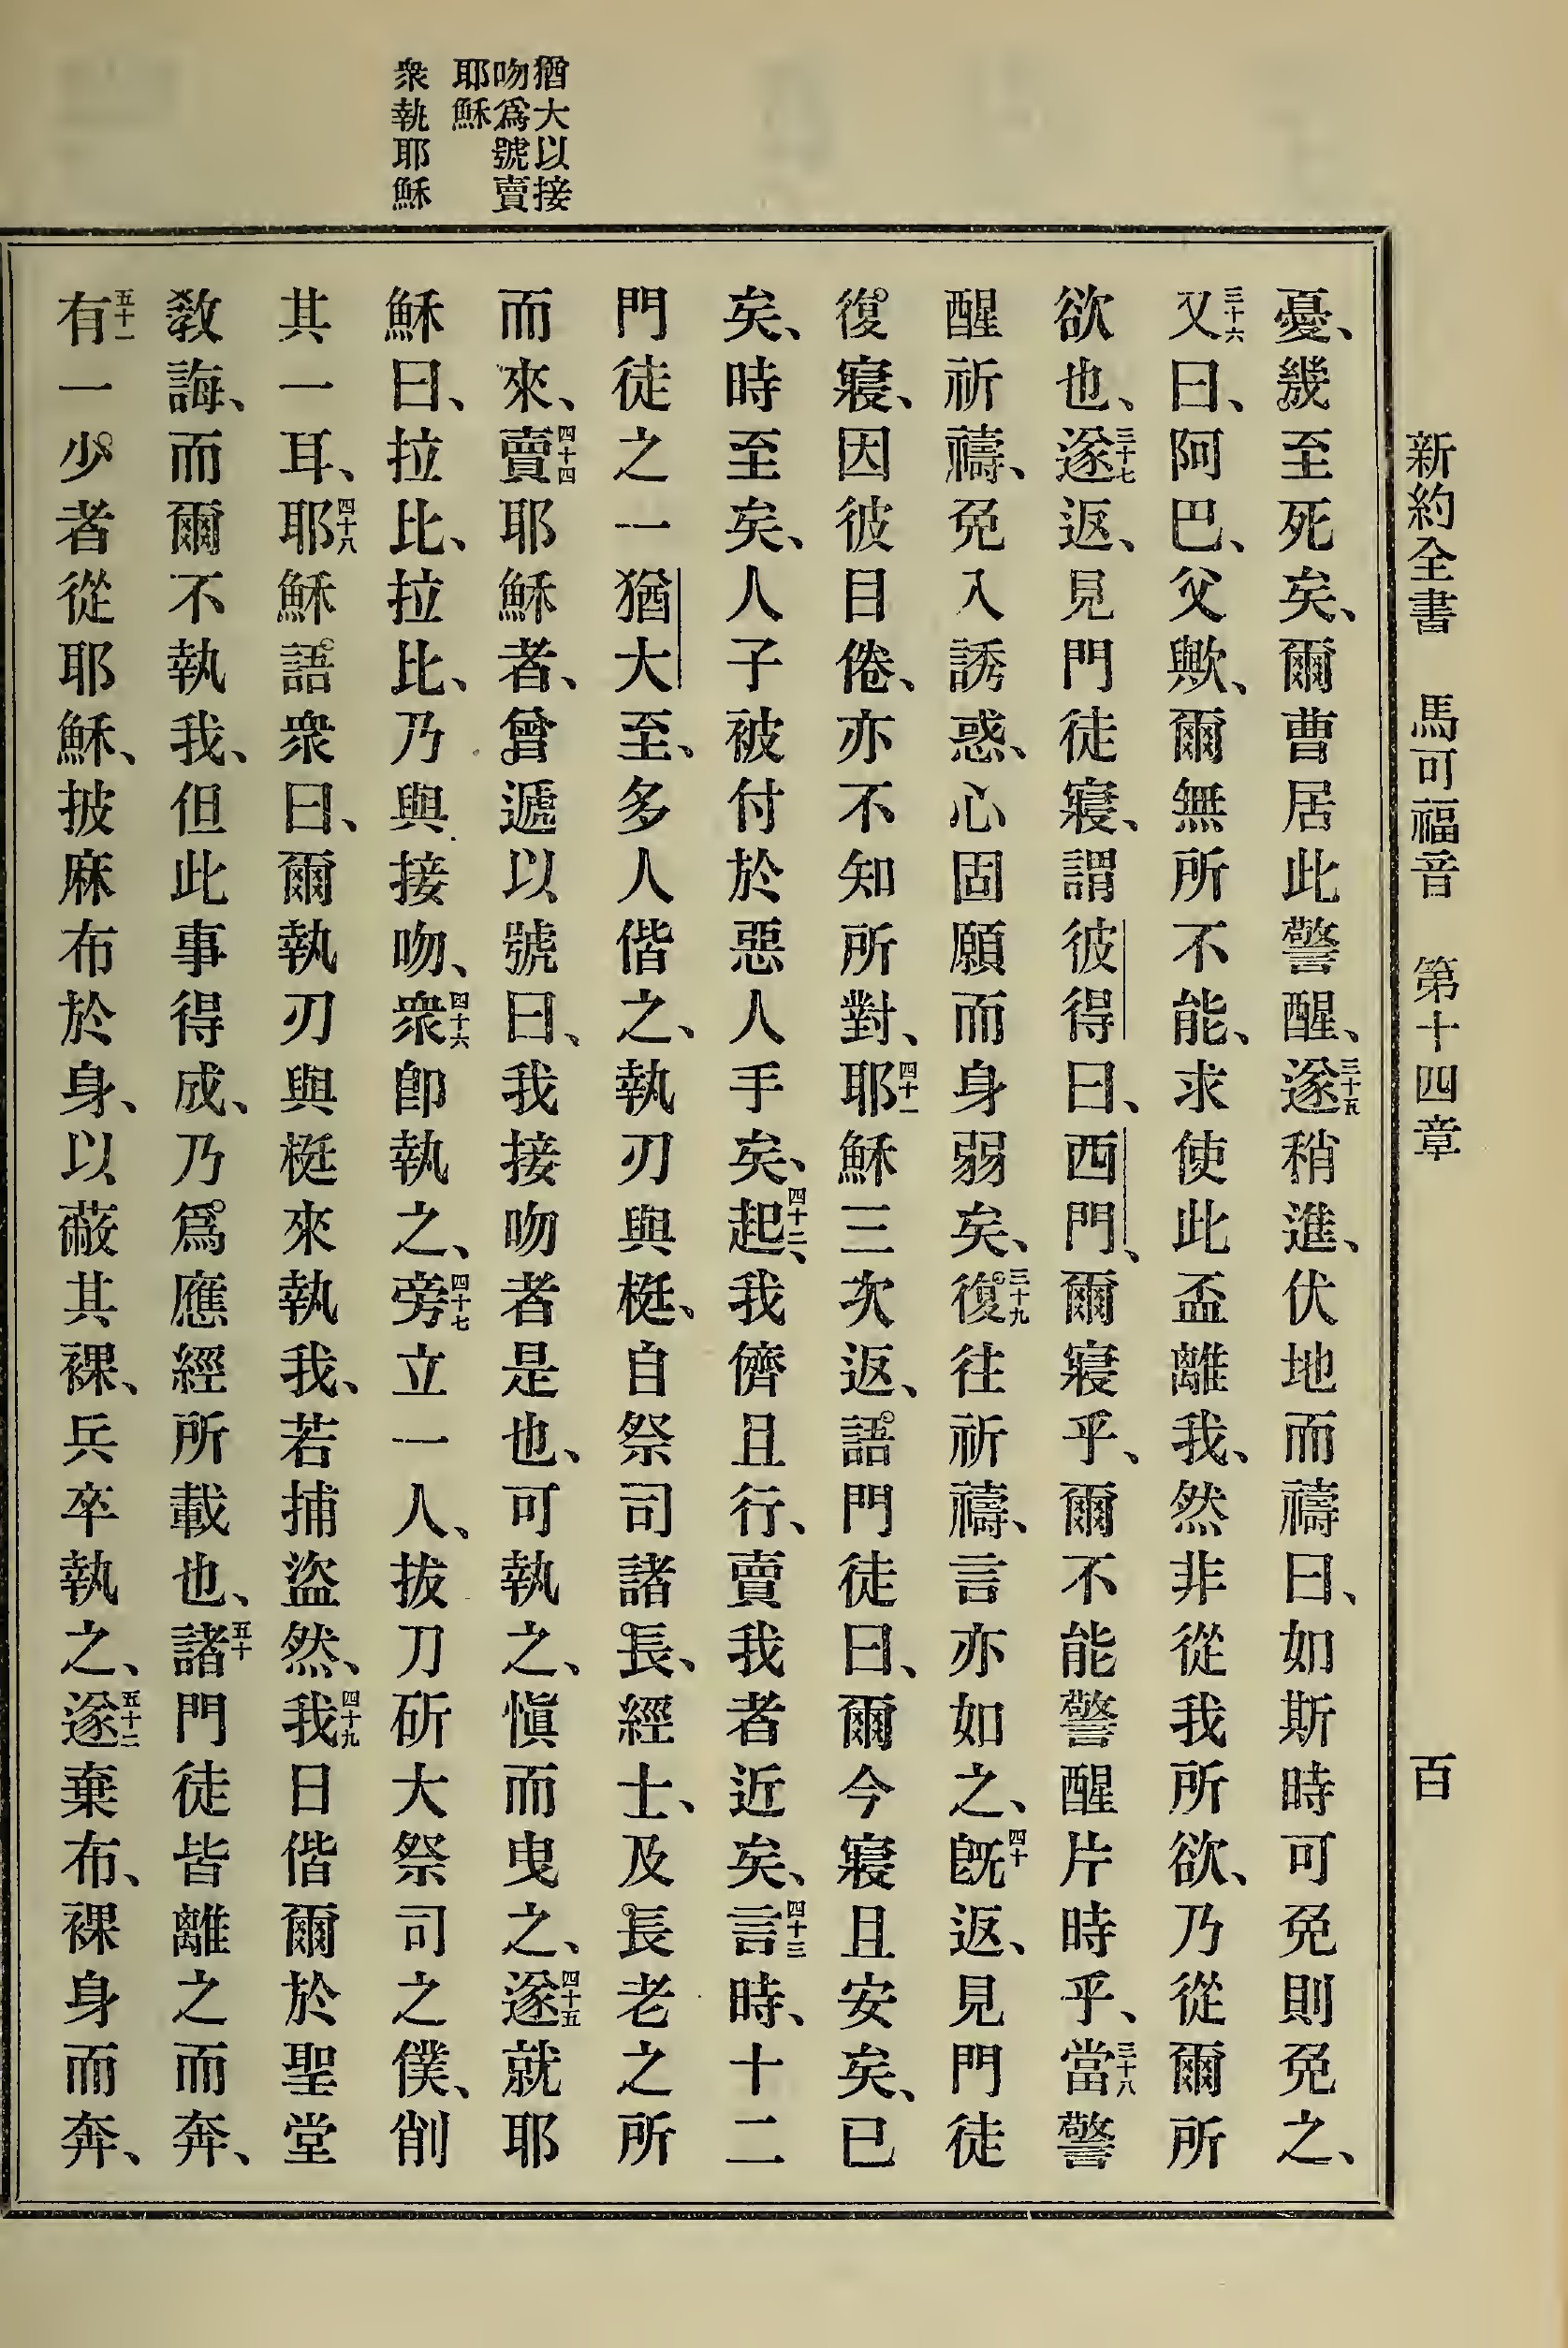 新約全書 馬可福音 第十四章 百
猶大以接
吻爲號賣
耶穌
衆執耶穌
憂、幾至死矣、爾曹居此警醒、三十五遂稍進、伏地而禱曰、如斯時可免則免之、
三十六又曰、阿巴、父歟、爾無所不能、求使此盃離我、然非從我所欲、乃從爾所
欲也、三十七遂返、見門徒寢、謂彼得曰、西門、爾寢乎、爾不能警醒片時乎、三十八當警
醒祈禱、免入誘惑、心固願而身弱矣、三十九復往祈禱、言亦如之、四十旣返、見門徒
復寢、因彼目倦、亦不知所對、四十一耶穌三次返、語門徒曰、爾今寢且安矣、已
矣、時至矣、人子被付於惡人手矣、四十二起、我儕且行、賣我者近矣、四十三言時、十二
門徒之一猶大至、多人偕之、執刃與梃、自祭司諸長、經士、及長老之所
而來、四十四賣耶穌者、曾遞以號曰、我接吻者是也、可執之、愼而曳之、四十五遂就耶
穌曰、拉比、拉比、乃與接吻、四十六衆卽執之、四十七旁立一人、拔刀斫大祭司之僕、削
其一耳、四十八耶穌語衆曰、爾執刃與梃來執我、若捕盜然、四十九我日偕爾於聖堂
敎誨、而爾不執我、但此事得成、乃爲應經所載也、五十諸門徒皆離之而奔、
五十一有一少者從耶穌、披麻布於身、以蔽其裸、兵卒執之、五十二遂棄布、裸身而奔、